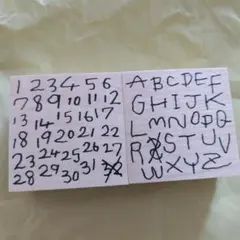 1 2 3 4 5 6
7 8 9 10 11 12
13 14 15 16 17
18 19 20 21 22
23 24 25 26 27
28 29 30 31
A B C D E F
G H I J K
L M N O P Q
R S T U V
W X Y Z